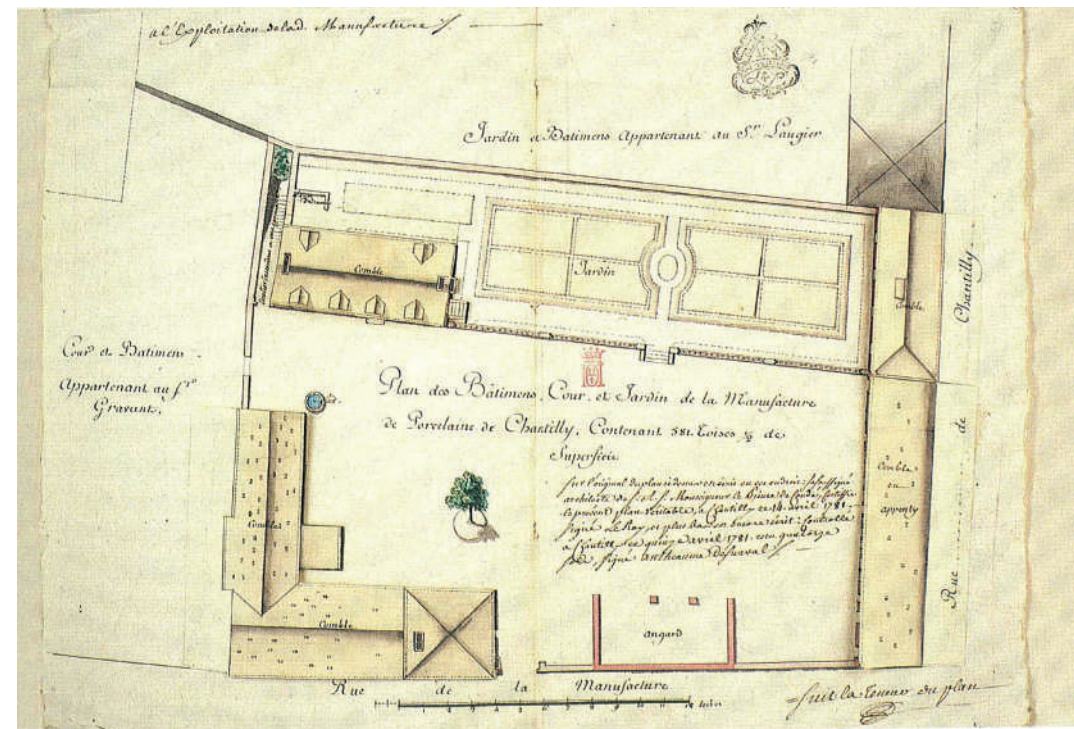 a l'Exploitation de lad. Manufacture
Jardin et Batimens Appartenant au Sr. Laugier
Comble
Jardin
Comble
Rue de Chantilly
Cour et Batimens
Appartenant au Sr
Gravant.
Plan des Bâtimens, Cour, et Jardin de la Manufacture
de Porcelaine de Chantilly, Contenant 581. Toises ½ de
Superficie
Sur l'original du plan
architecte de S. A. S. Monseigneur Le Prince de Condé, Certifie
le présent plan véritable, a Chantilly ce 14. avril 1781.
signé Le Roy, et plus bas est encore écrit: Controllé
à Chantilly ce quinze avril 1781. reçu quatorze
sols, signé
Comble
Comble
en
appenty
Comble
angard
Rue de la Manufacture
1 2 3 4 5 6 7 8 9 10 11
Suit la teneur du plan